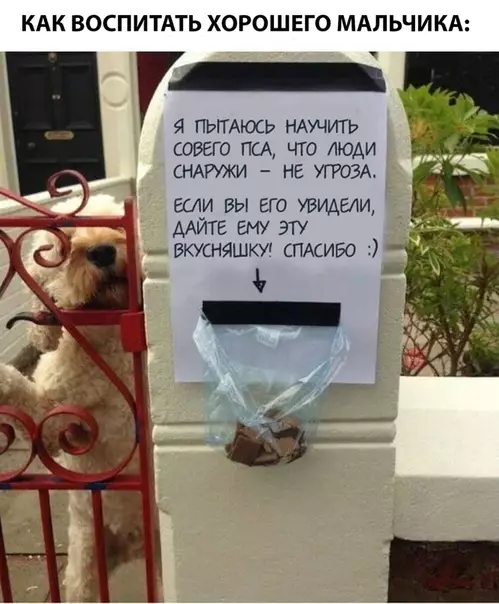 КАК ВОСПИТАТЬ ХОРОШЕГО МАЛЬЧИКА:
Я ПЫТАЮСЬ НАУЧИТЬ
СОВЕГО ПСА, ЧТО ЛЮДИ
СНАРУЖИ – НЕ УГРОЗА.
ЕСЛИ ВЫ ЕГО УВИДЕЛИ,
ДАЙТЕ ЕМУ ЭТУ
ВКУСНЯШКУ! СПАСИБО :)